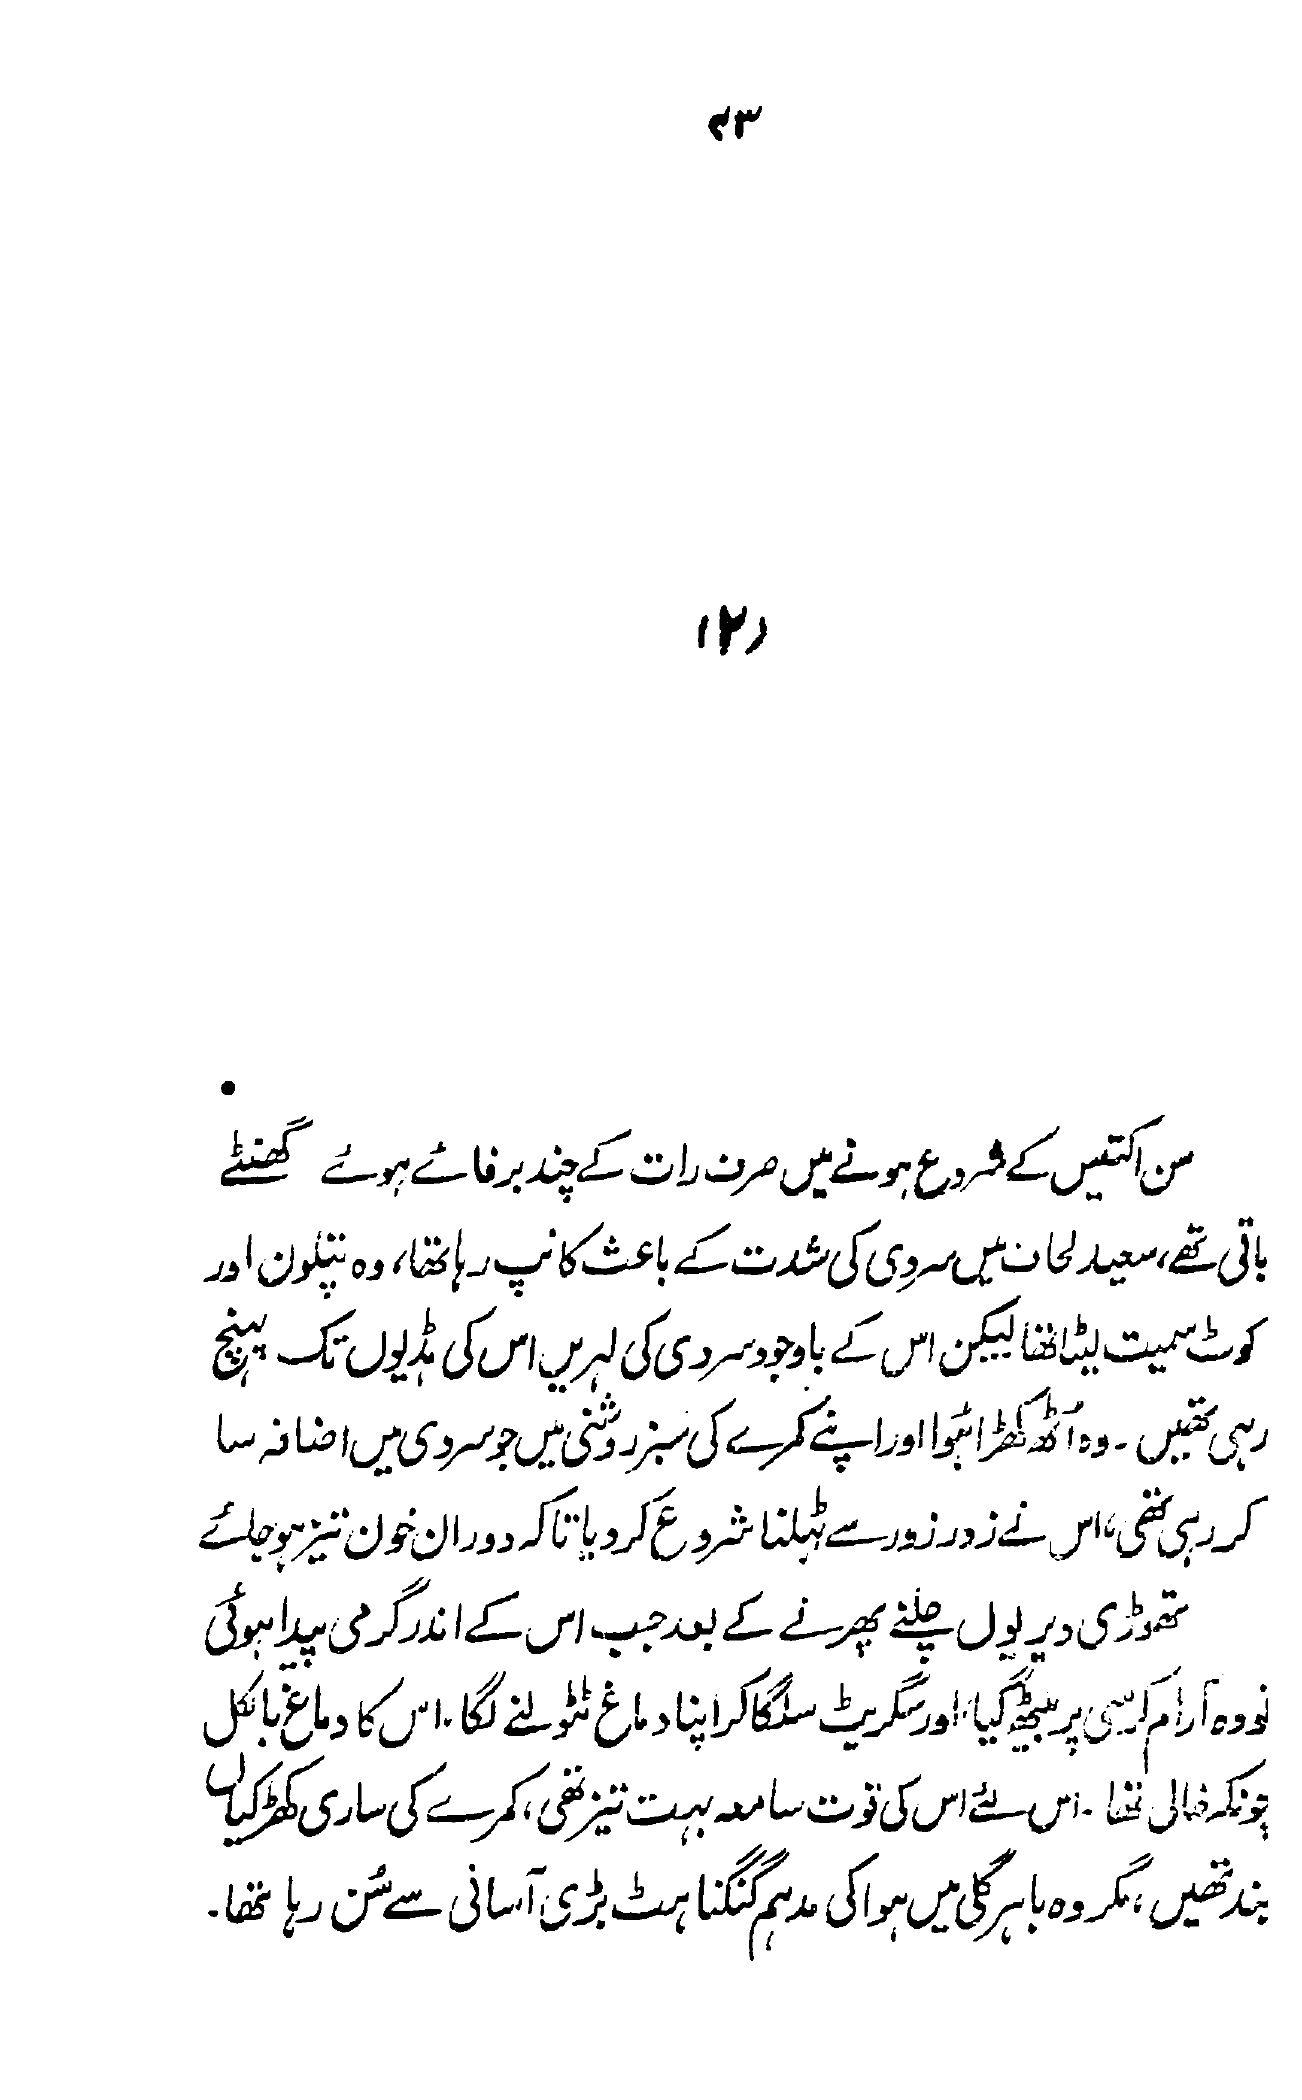 ۴۳
(۲)
سن اکتیس کے شروع ہونے میں صرف رات کے چند برفائے ہوئے گھنٹے
باقی تھے، سعید لحاف میں سردی کی شدت کے باعث کانپ رہا تھا، وہ پتلون اور
کوٹ سمیت لیٹا تھا لیکن اس کے باوجود سردی کی لہریں اس کی ہڈیوں تک پہنچ
رہی تھیں ۔ وہ اُٹھ کھڑا ہُوا اور اپنے کمرے کی سبز روشنی میں جو سردی میں اضافہ سا
کر رہی تھی، اس نے زور زور سے ٹہلنا شروع کر دیا تاکہ دوران خون تیز ہو جائے
تھوڑی دیر یوں چلنے پھرنے کے بعد جب اس کے اندر گرمی پیدا ہوئی
تو وہ آرام کرسی پر بیٹھ گیا، اور سگریٹ سلگا کر اپنا دماغ ٹٹولنے لگا۔ اس کا دماغ بالکل
چونکہ خالی تھا ۔ اس لئے اس کی قوت سامعہ بہت تیز تھی، کمرے کی ساری کھڑکیاں
بند تھیں، مگر وہ باہر گلی میں ہوا کی مدہم گنگناہٹ بڑی آسانی سے سُن رہا تھا۔